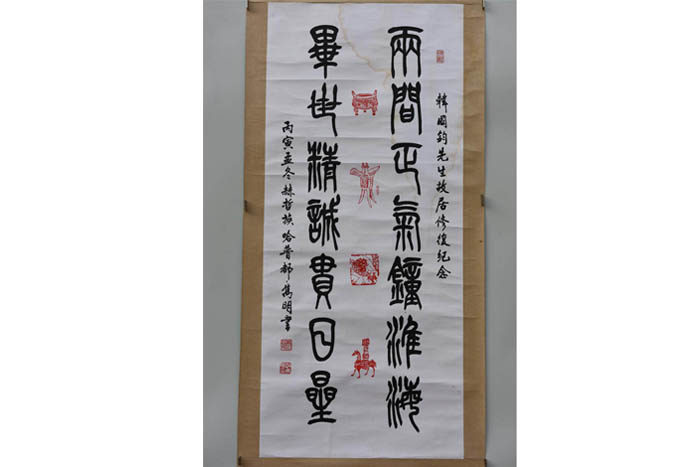 韓國鈞先生故居修復紀念
兩間正氣鐘淮海
畢世精誠貫日星
丙寅孟冬赫哲族哈普都嵩明書